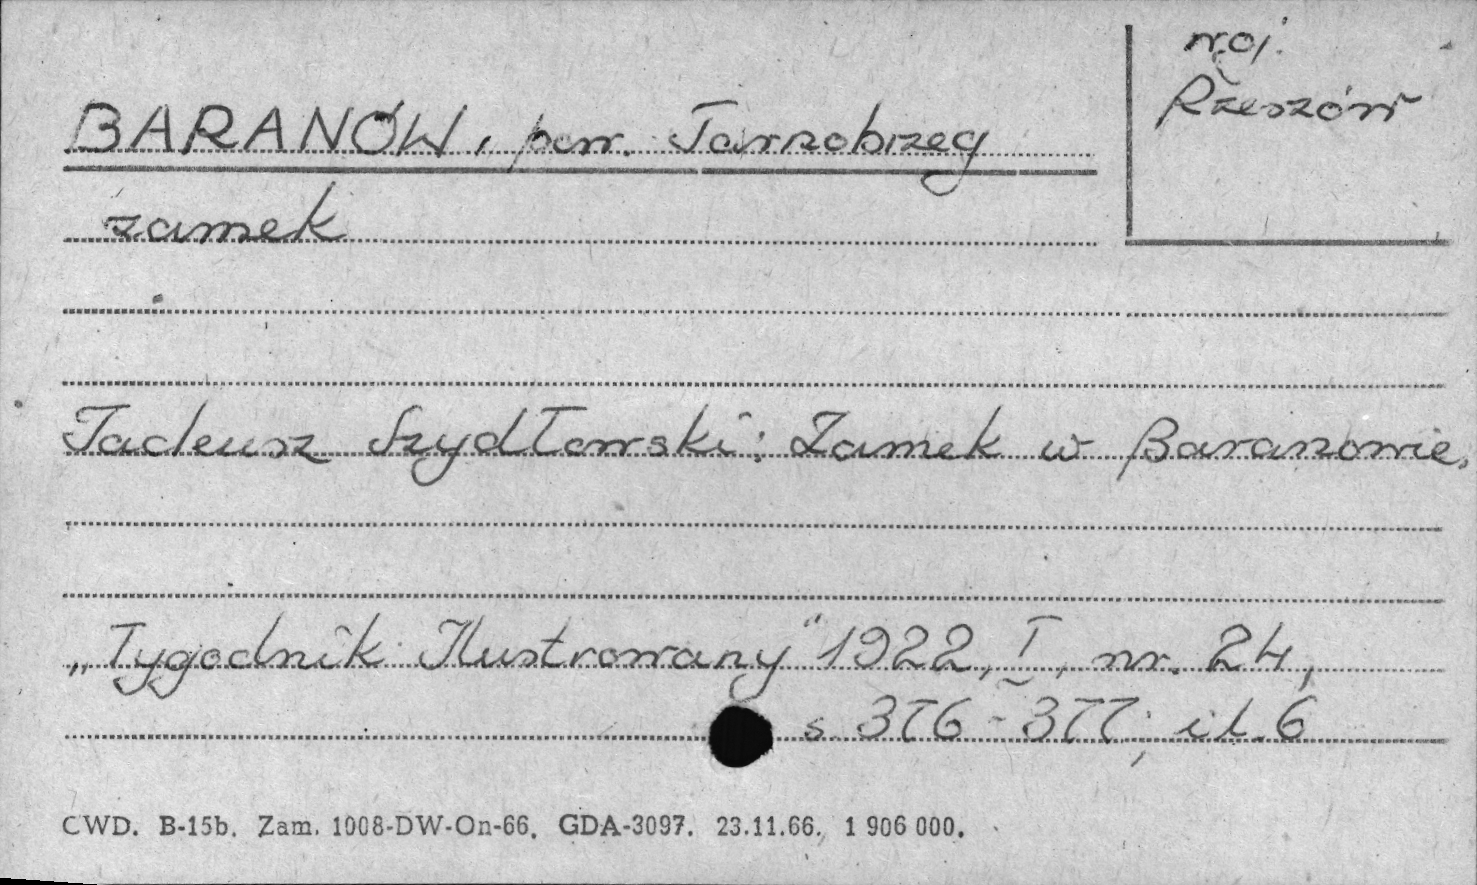 woj.
Rzeszów
BARANÓW, pow. Tarnobrzeg
zamek
Tadeusz Szydłowski: Zamek w Baranowie.
„Tygodnik Ilustrowany" 1922, I, nr. 24,
s 376-377; il. 6
CWD. B-15b. Zam. 1008-DW-On-66. GDA-3097. 23.11.66. 1 906 000.